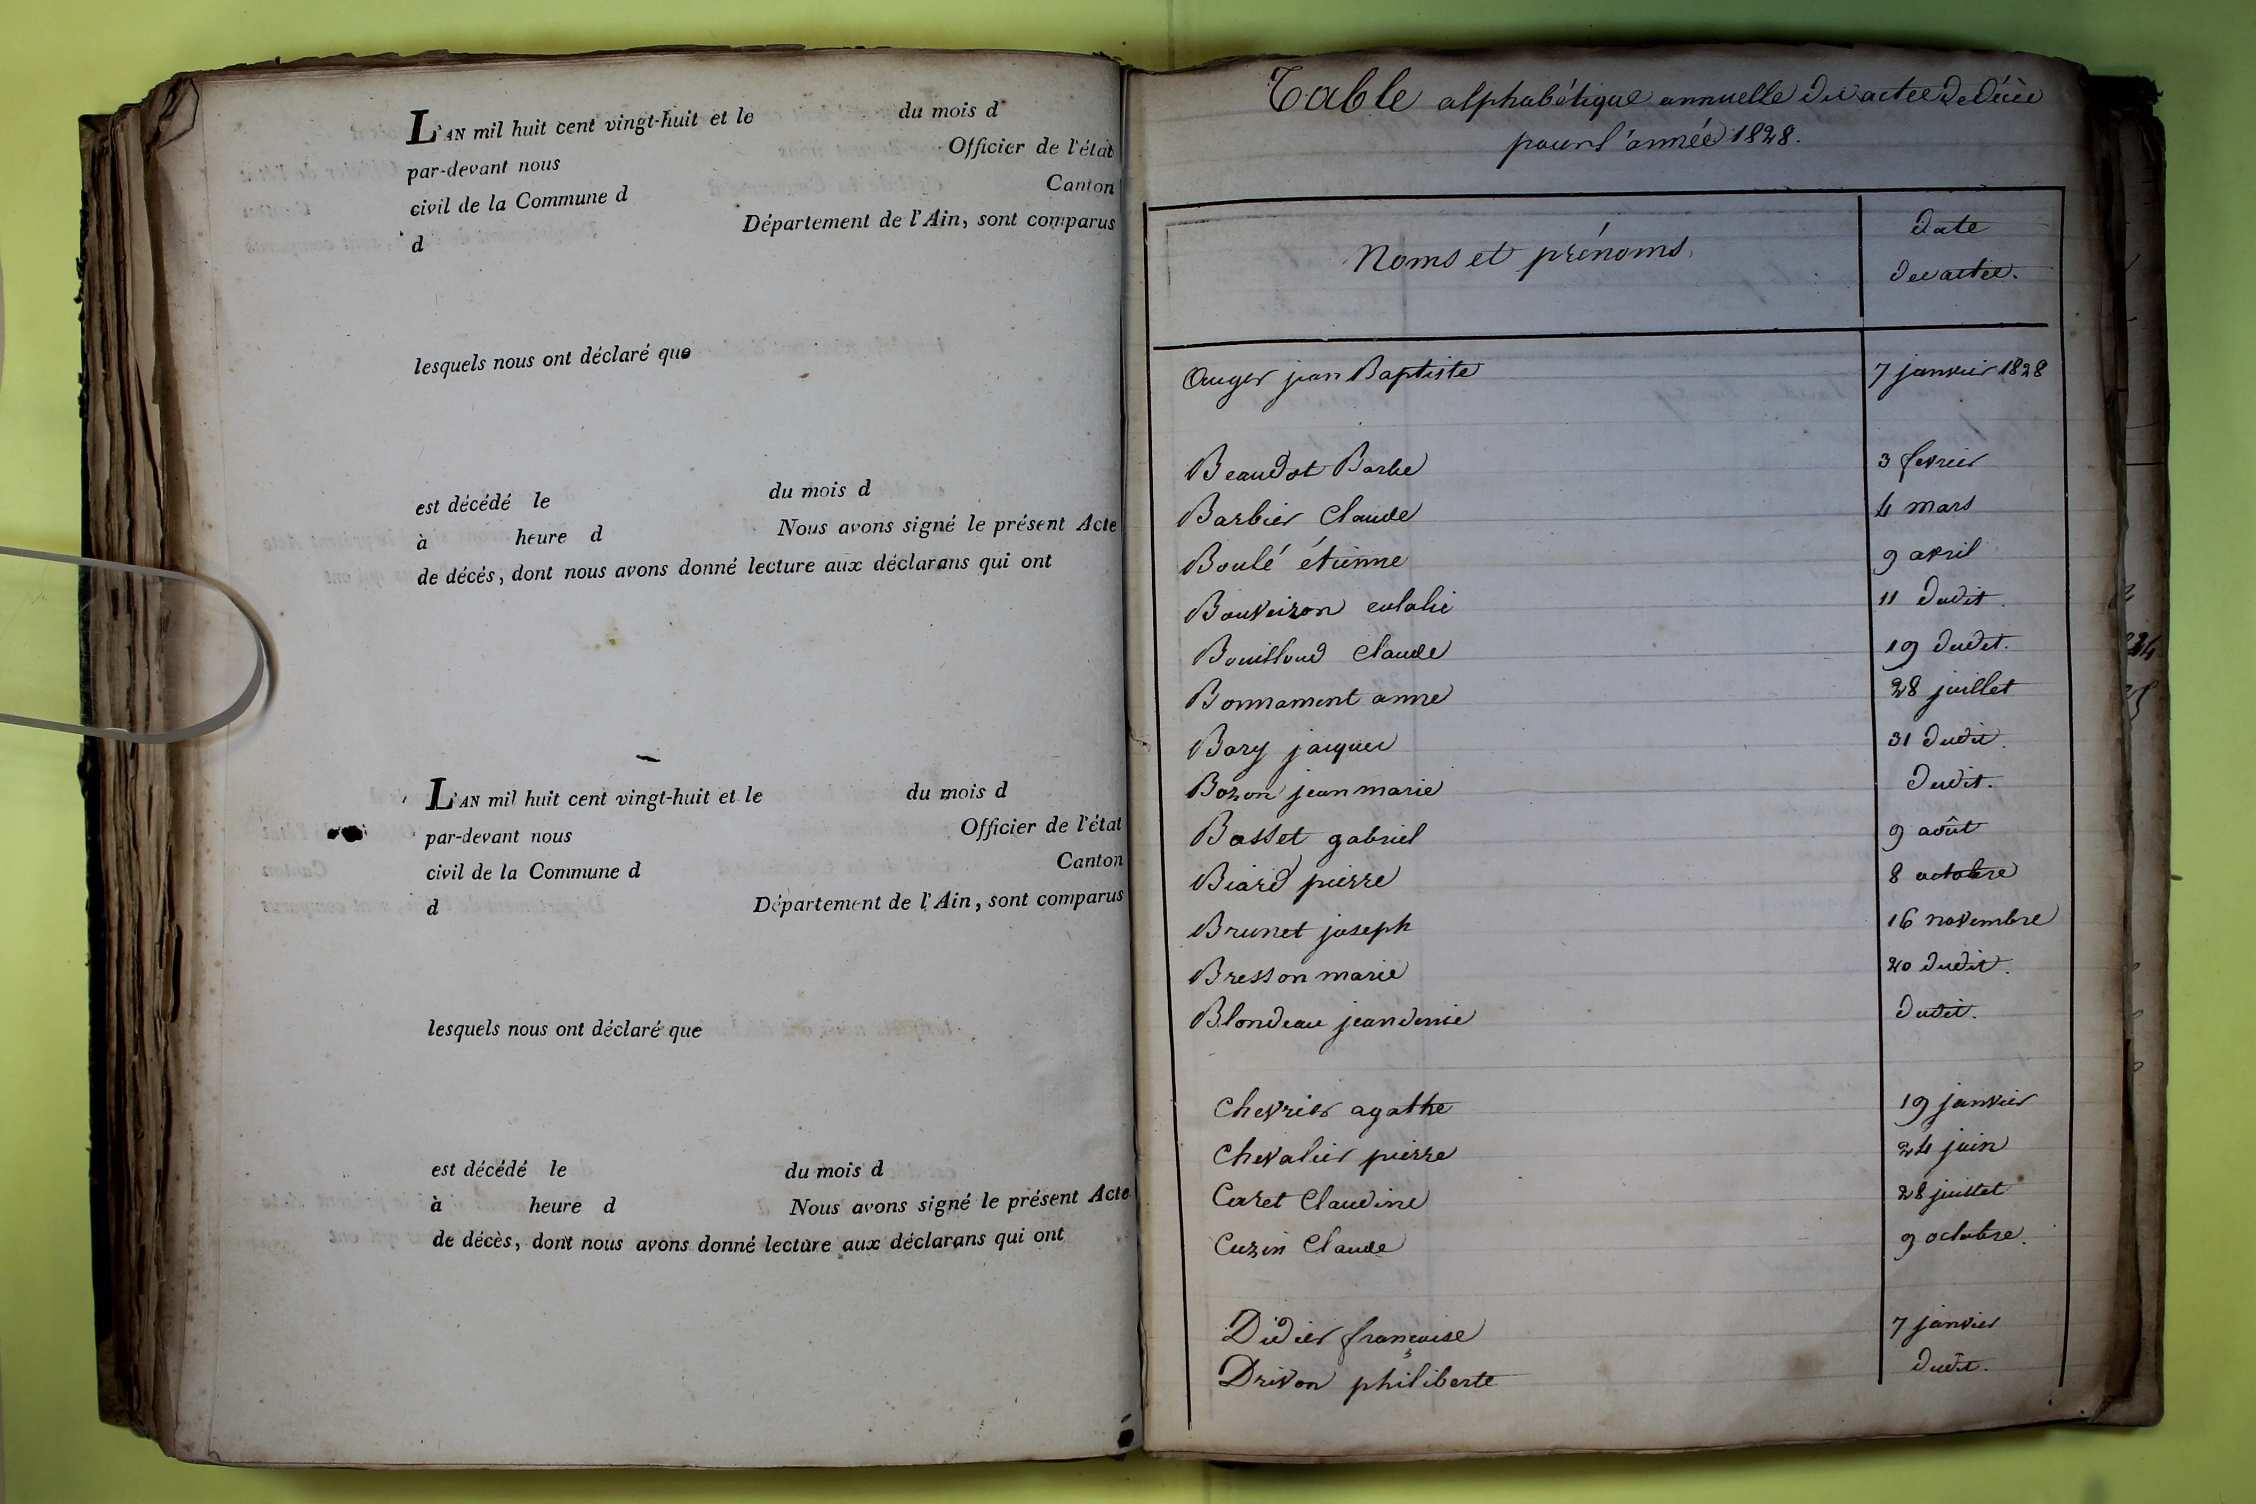 L'AN mil huit cent vingt-huit et le du mois d
par-devant nous Officier de l'état
civil de la Commune d Canton
d Département de l'Ain, sont comparus
lesquels nous ont déclaré que
est décédé le du mois d
à heure d Nous avons signé le présent Acte
de décés, dont nous avons donné lecture aux déclarans qui ont
L'AN mil huit cent vingt-huit et le du mois d
par-devant nous Officier de l'état
civil de la Commune d Canton
d Département de l'Ain, sont comparus
lesquels nous ont déclaré que
est décédé le du mois d
à heure d Nous avons signé le présent Acte
de décès, dont nous avons donné lecture aux déclarans qui ont
Table alphabétique annuelle des actes de Décès
pour l'année 1828.
Noms et prénoms. Date
des actes.
Auger jean Baptiste 7 janvier 1828
Beaudot Barbe 3 fevrier
Barbier Claude 4 mars
Boulé étienne 9 avril
Bouveizon eulalie 11 dudit.
Bouilloud Claude 19 dudit.
Bonnament anne 28 juillet
Bory jacques 31 dudit.
Bozon jean marie dudit.
Basset gabriel 9 août
Biard pierre 8 octobre
Brunet joseph 16 novembre
Bresson marie 20 dudit.
Blondeau jean denis dudit.
Chevrier agathe 19 janvier
Chevalier pierre 24 juin
Curet Claudine 28 juillet
Cuzin Claude 9 octobre.
Didier françoise 7 janvier
Drivon philiberte dudit.